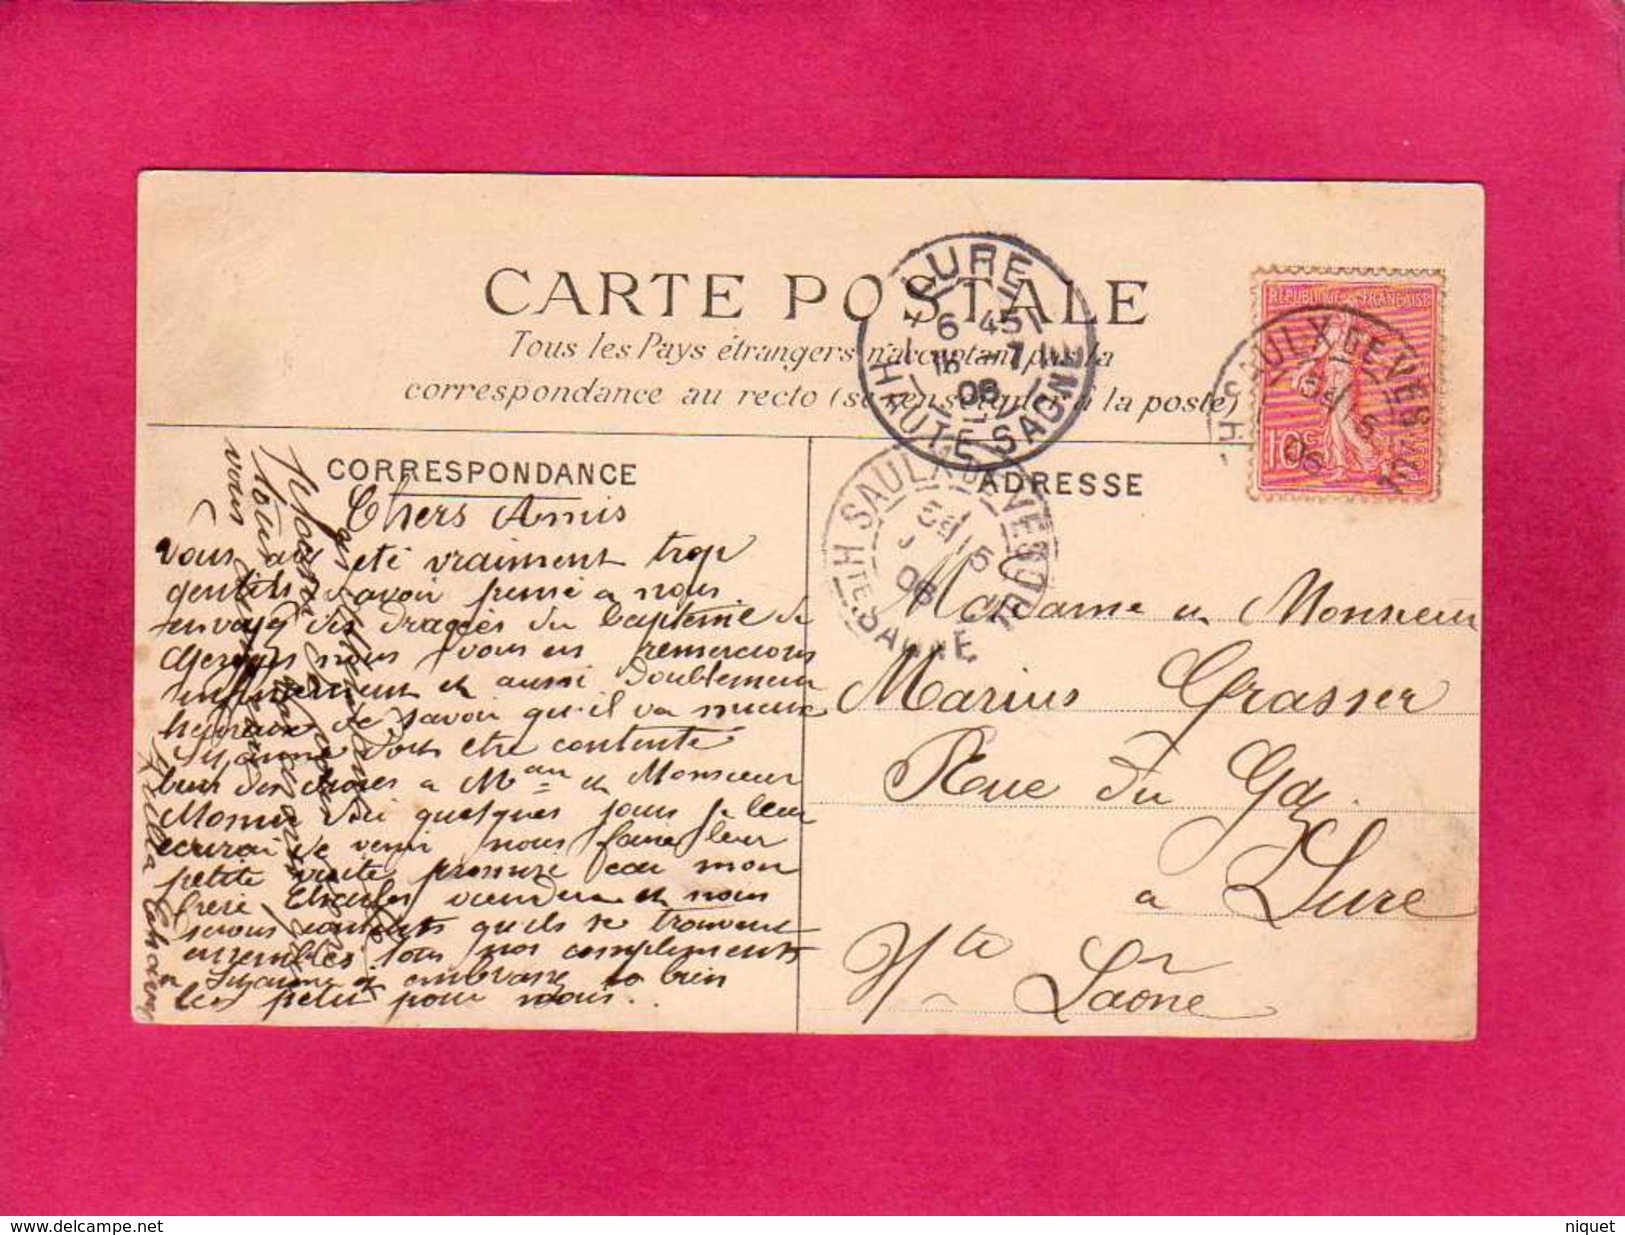 CARTE POSTALE
Tous les Pays étrangers n'acceptant pas la
correspondance au recto (se renseigner à la poste)
CORRESPONDANCE
Chers Amis
Vous avez été vraiment trop
gentils d'avoir pensé a nous
envoyé des dragées du baptême de
Georges nous vous en remercions
infiniment et aussi doublement
heureux de savoir qu'il va mieux
Suzanne doit etre contente
bien des choses a Mme et Monsieur
d'ici quelques jours je leur
écrirai de venir nous faire leur
petite visite promise car mon
frère Charles viendra et nous
serons contents qu'ils se trouvent
ensembles tous nos compliments
a Suzanne et embrassez bien
les petits pour nous.
ADRESSE
Madame et Monsieur
Marius Grasser
Rue du Gaz
a Lure
Hte Saône
LURE
6 45
16 -7
06
HAUTE-SAONE
SAULX DE VESOUL
5
06
HTE SAONE
REPUBLIQUE FRANÇAISE
10c
POSTES
SAULX DE VESOUL
5
06
delcampe.net
niquet